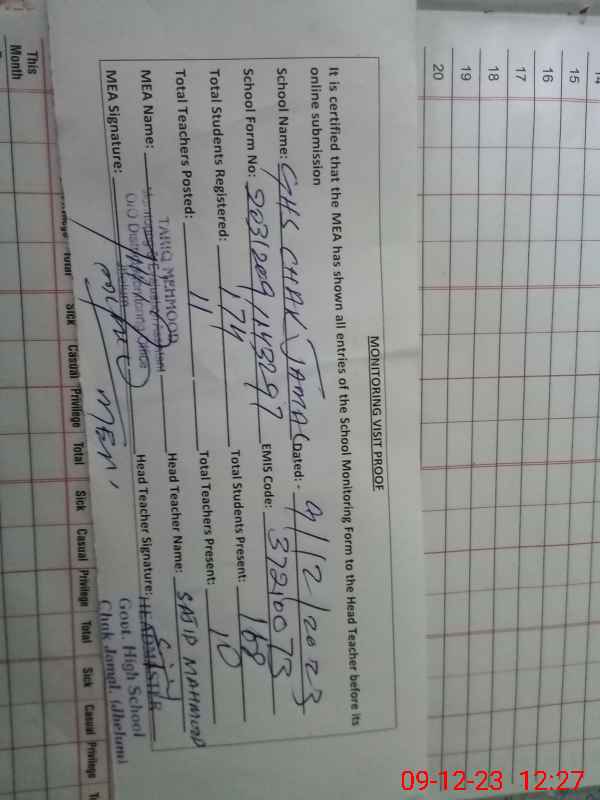 MONITORING VISIT PROOF
It is certified that the MEA has shown all entries of the School Monitoring Form to the Head Teacher before its
online submission
School Name: GHS CHAK JAMAL Dated: - 9/12/2023
School Form No: EMIS Code: 37210073
Total Students Registered: 174 Total Students Present: 168
Total Teachers Posted: 11 Total Teachers Present: 10
MEA Name: TARIQ MEHMOOD Head Teacher Name: SAJID MAHMOOD
MEA Signature: Head Teacher Signature: HEADMASTER
Govt. High School
Chak Jamal, (Jhelum)
Total Sick Casual Privilege Total Sick Casual Privilege Total Sick Casual Privilege
This
Month
14
15
16
17
18
19
20
09-12-23 12:27